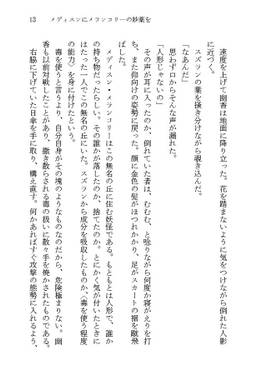 13　メディスンにメランコリーの妙薬を
速度を上げて幽香は地面に降り立った。花を踏まないように気をつけながら、倒れた人影
に近づく。
スズランの葉を掻き分けながら覗き込んだ。
「なあんだ」
思わず口からそんな声が漏れた。
「人形じゃないの」
その声が耳に入ったのか、倒れていた者は、むむむ、と唸りながら何度か寝がえりを打
ち、また仰向けの姿勢に戻った。顔に金色の髪がほつれかかり、足がスカートの裾を蹴飛
ばした。
メディスン・メランコリーはこの無名の丘に住む妖怪である。もともとは人形で、誰か
の持ち物だったらしい。その誰かが落したのか、捨てたのか、とにかく気が付いたときに
はたった一人でこの無名の丘にいた。スズランから成分を吸収したものか、〈毒を使う程度
の能力〉を身に付けたという。
毒を使うと言うより、自分自身がその塊のようなものなのだから、危険極まりない。幽
香も以前対戦したことがあり、撒き散らされる毒の扱いに散々手を焼かされたものである。
右脇に下げていた日傘を手に取り、構え直す。何かあればすぐ攻撃の態勢に入れるよう、